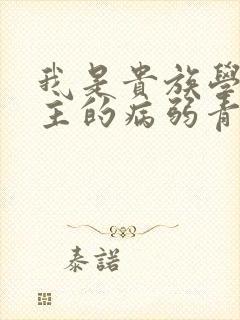 我是貴族學
主的病弱青
泰諾